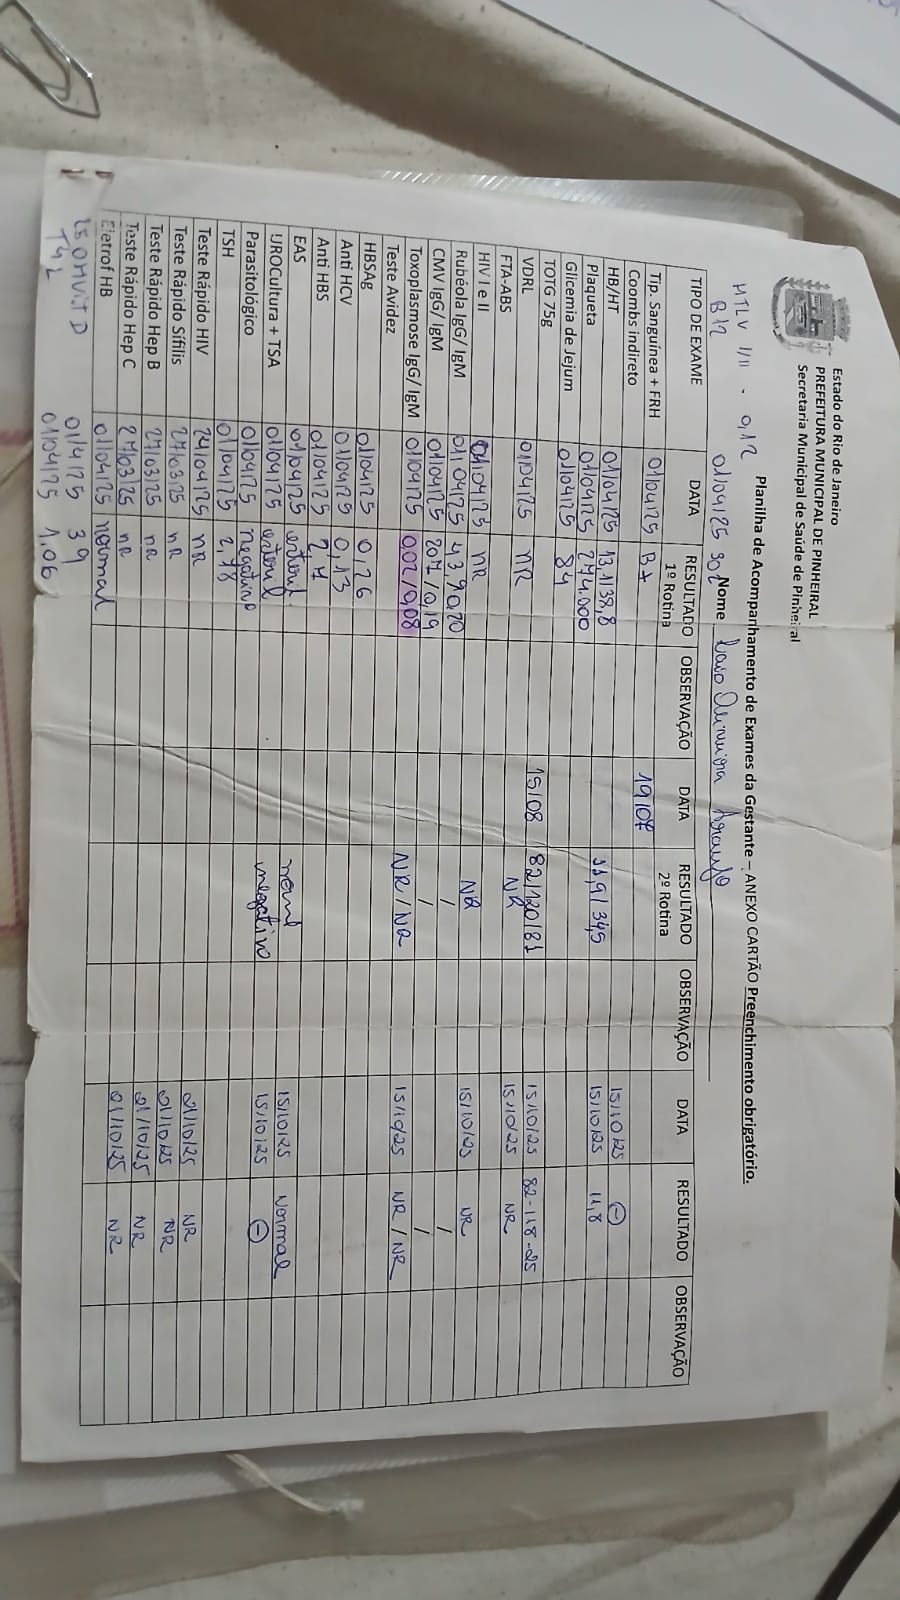 Estado do Rio de Janeiro
PREFEITURA MUNICIPAL DE PINHEIRAL
Secretaria Municipal de Saúde de Pinheiral
Planilha de Acompanhamento de Exames da Gestante – ANEXO CARTÃO Preenchimento obrigatório.
HTLV I/II - 0,12
B12 01/04/25 302 Nome Araujo
TIPO DE EXAME DATA RESULTADO 1º Rotina OBSERVAÇÃO DATA RESULTADO 2º Rotina OBSERVAÇÃO DATA RESULTADO OBSERVAÇÃO
Tip. Sanguínea + FRH 01/04/25 B+
Coombs indireto 19/07
HB/HT 01/04/25 13,1/38,8 15/10/25 (-)
Plaqueta 01/04/25 274.000 11,9/34,5 15/10/25 11,8
Glicemia de Jejum 01/04/25 84
TOTG 75g 15/08 82/120/81 15/10/25 82-118-25
VDRL 01/04/25 NR NR 15/10/25 NR
FTA-ABS
HIV I e II 01/04/25 NR NR 15/10/25 NR
Rubéola IgG/ IgM 01/04/25 43,9 0,20 / /
CMV IgG/ IgM 01/04/25 207/0,19 / /
Toxoplasmose IgG/ IgM 01/04/25 0,02/0,08 NR / NR 15/10/25 NR / NR
Teste Avidez
HBSAg 01/04/25 0,26
Anti HCV 01/04/25 0,13
Anti HBS 01/04/25 2,7
EAS 01/04/25 esteril normal 15/10/25 Normal
UROCultura + TSA 01/04/25 esteril negativo 15/10/25 (-)
Parasitológico 01/04/25 negativo
TSH 01/04/25 2,78
Teste Rápido HIV 24/04/25 NR 01/10/25 NR
Teste Rápido Sífilis 27/03/25 NR 01/10/25 NR
Teste Rápido Hep B 27/03/25 NR 01/10/25 NR
Teste Rápido Hep C 27/03/25 NR 01/10/25 NR
Eletrof HB 01/04/25 normal
25OHVIT D 01/4/25 39
T4L 01/04/25 1.06